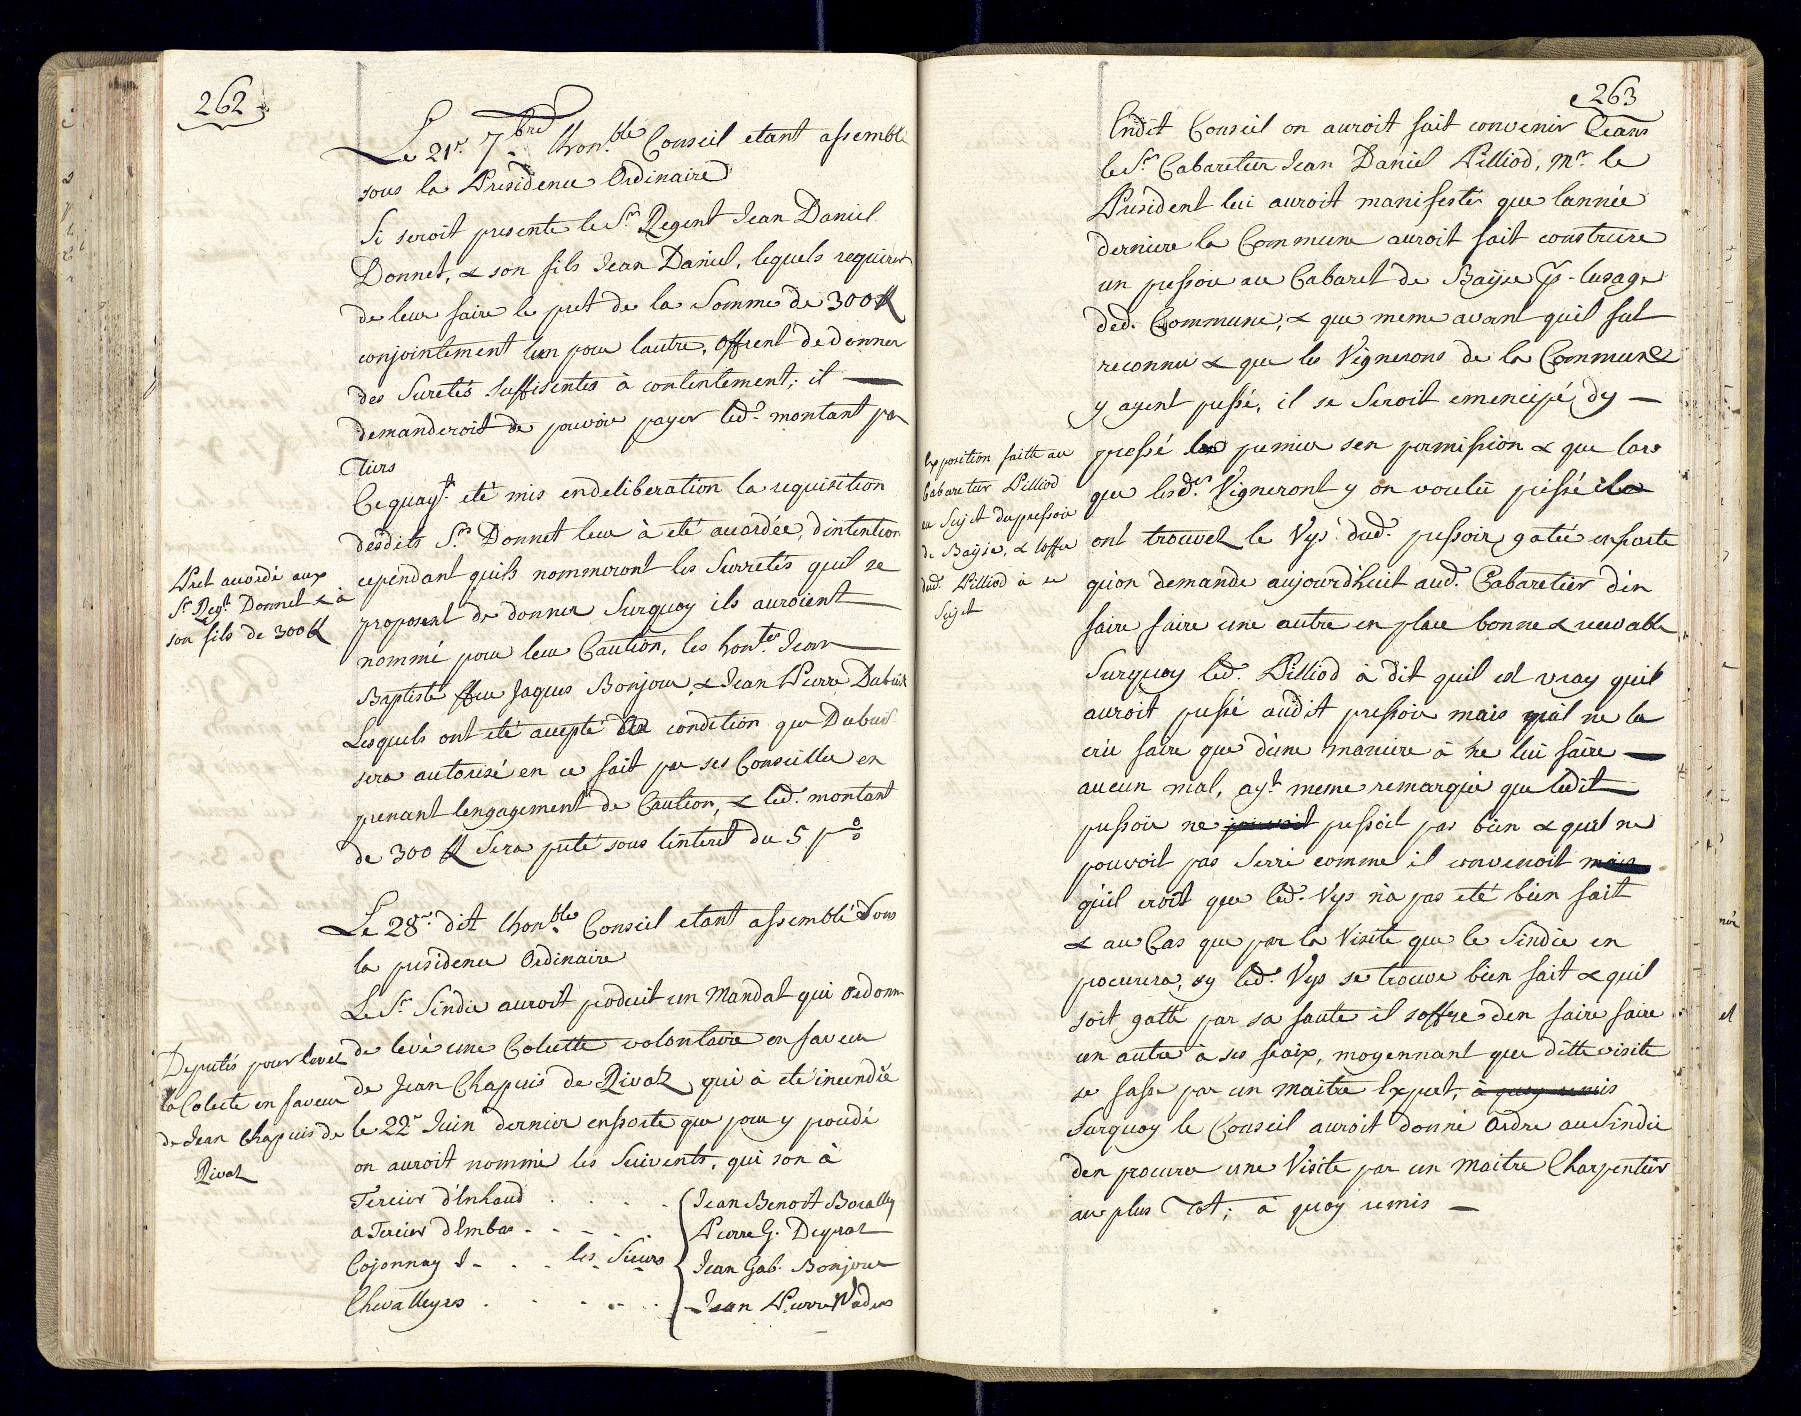 262.
Le 21.e 7.bre lhon.ble Conseil etant assemblé
sous la Présidence Ordinaire
Si seroit presenté le S.r Regent Jean Daniel
Donnet, & son fils Jean Daniel, lequels requirent
de leur faire le pret de la Somme de 300 fl
conjointement lun pour lautre, Offrent de donner
des Suretés suffisentes à contentement; il —
demanderoit de pouvoir payer led.t montant par
Tiers
Cequay.t eté mis endeliberation la requisition
desdits S.rs Donnet leur à eté accordée, dintention
cependant quils nommeront les Surretés quil se
proposent de donner Surquoy ils auroient
nommé pour leur Caution, les hon.tes Jean —
Baptiste ffeu Jaques Bonjour, & Jean Pierre Dubuis
Lesquels ont eté accepté condition que Dubuis
sera autorisé en ce fait par ses Conseiller en
prenant lengagement de Caution, & led.t montant
de 300 fl Sera preté sous linteret du 5 p %
Pret accordé aux
S.r Reg.t Donnet & à
son fils de 300 fl
Le 28.e dit lhon.ble Conseil etant assemblé Sous
la presidence Ordinaire
Le S.r Sindic auroit produit un Mandat qui Ordonne
de levé une Colecte volontaire en faveur
de Jean Chapuis de Rivaz qui à eté incendié
le 22.e Juin dernier ensorte que pour y procedé
on auroit nommé les Suivents, qui son à
Tercier d'Enhaud . . . . . Jean Benoit Bovalley
a Tercier dEmbas . . . . . Pierre G. Deprat
Cojonnay J . . . les Sieurs Jean Gab. Bonjour
Chevalleyres . . . . . Jean Pierre Wadens
Deputés pour levez
la Colecte en faveur
de Jean Chapuis de
Rivaz
263
Endit Conseil on auroit fait convenir Ceans
le S.r Cabaretier Jean Daniel Pilliod, M.r le
Président lui auroit manifesté que lannée
derniere la Commune auroit fait construire
un pressoir au Cabaret de Baÿse p.r lusage
ded. Commune, & que meme avant quil fut
reconnu & que les Vignerons de la Commune
y ayent pressé, il se Seroit emencipé dy —
pressé le premier sen permission & que lors
que lesd.ts Vigneront y on voulu pressé ils
ont trouvez le Vys dud.t pressoir gatée ensorte
qu'on demande aujourdhuit aud.t Cabaretier d'en
faire faire une autre en place bonne & recevable
Surquoy led.t Pilliod à dit quil est vray quil
auroit pressé audit pressoir mais quil ne la
crü faire que d'une maniere à ne lui faire —
aucun mal, ay.t meme remarqué que ledit
pressoir ne pouvoit pressoit pas bien & quil ne
pouvoit pas Serré comme il convenoit mais
qu'il croit que led.t Vys n'a pas eté bien fait
& au Cas que par la Visite que le Sindic en
procurera, sy led.t Vys se trouve bien fait & quil
soit gatté par sa faute il soffre d'en faire faire
un autre à ses fraix, moyennant que ditte visite
se fasse par un maitre Expert, à quoy remis
Surquoy le Conseil auroit donné Ordre au Sindic
den procurer une Visite par un maitre Charpentier
au plus Tot; à quoy remis —
Exposition faitte au
Cabaretier Pilliod
au Sujet du pressoir
de Baÿse, & loffre
dud.t Pilliod à ce
Sujet